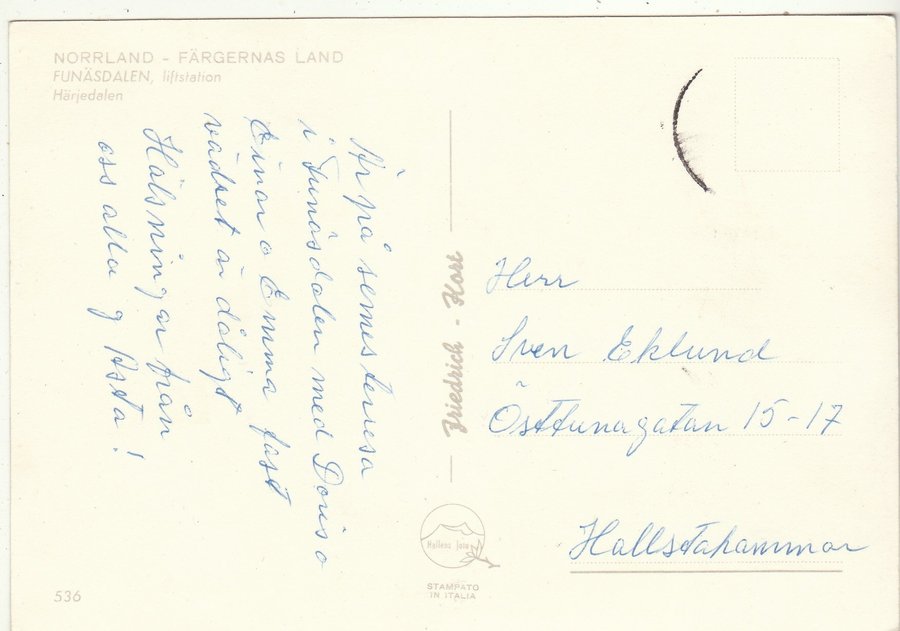 NORRLAND - FÄRGERNAS LAND
FUNÄSDALEN, liftstation
Härjedalen
Är på semesterresa
i Funäsdalen med Doris o
Einar o Emma fast
vädret är dåligt
Hälsningar från
oss alla g Asta!
Friedrich - Kort
Herr
Sven Eklund
Östtunagatan 15-17
Hallstahammar
Hallens foto
STAMPATO
IN ITALIA
536